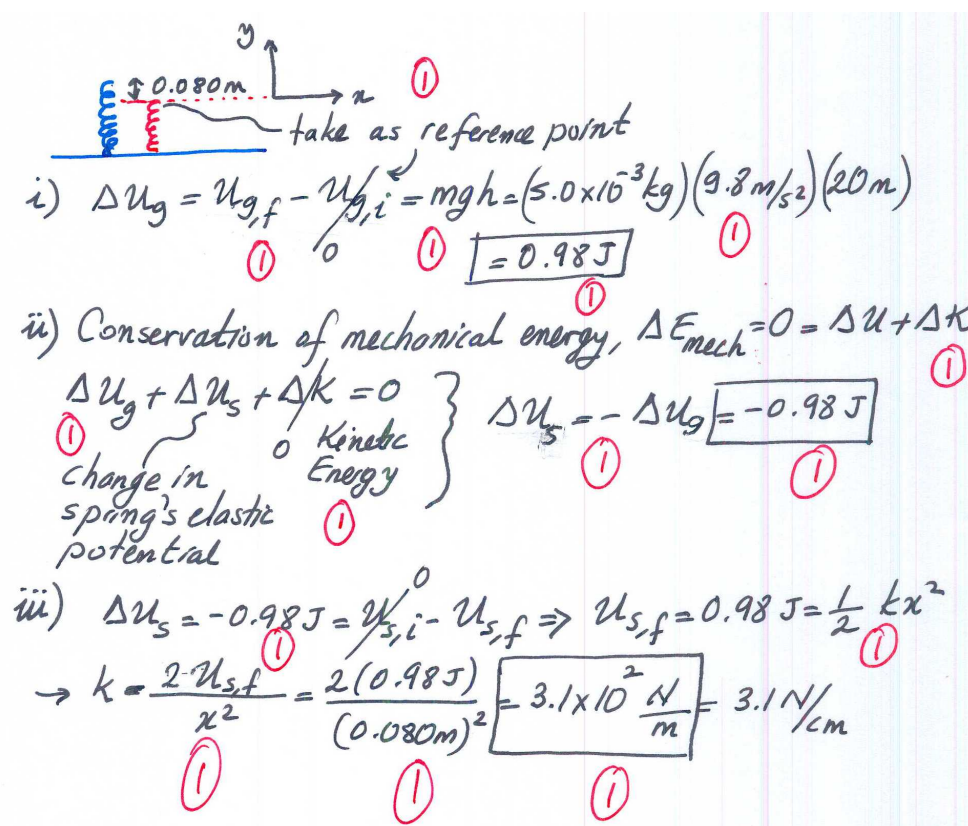 y
0.080m
x
①
take as reference point
i) ΔUg = Ug,f - Ug,i = mgh = (5.0×10⁻³kg)(9.8m/s²)(20m)
① 0 ① = 0.98J ①
①
ii) Conservation of mechanical energy, ΔEmech = 0 = ΔU + ΔK
①
ΔUg + ΔUs + ΔK = 0 } ΔUs = - ΔUg = -0.98 J
① 0 Kinetic ① ①
change in Energy
spring's elastic ①
potential
0
iii) ΔUs = -0.98J = Us,i - Us,f ⇒ Us,f = 0.98 J = 1/2 kx²
① ①
→ k = 2 Us,f / x² = 2(0.98J) / (0.080m)² = 3.1×10² N/m = 3.1 N/cm
① ① ①